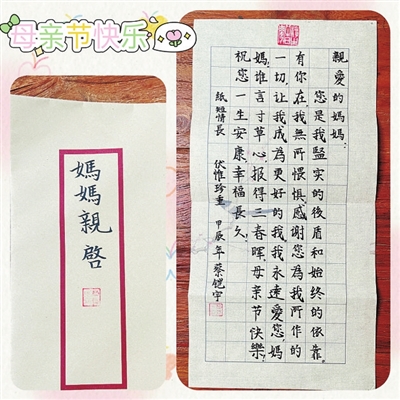 母亲节快乐
媽媽親啓
親愛的媽媽:
您是我堅實的後盾和始終的依靠,
有你在我無所畏惧,感謝您為我所作的
一切,讓我成為更好的我,我永遠愛您,媽
媽,誰言寸草心,报得三春晖,母亲节快樂!
祝您一生安康幸福長久。
紙短情長 伏惟珍重 甲辰年 蔡宇